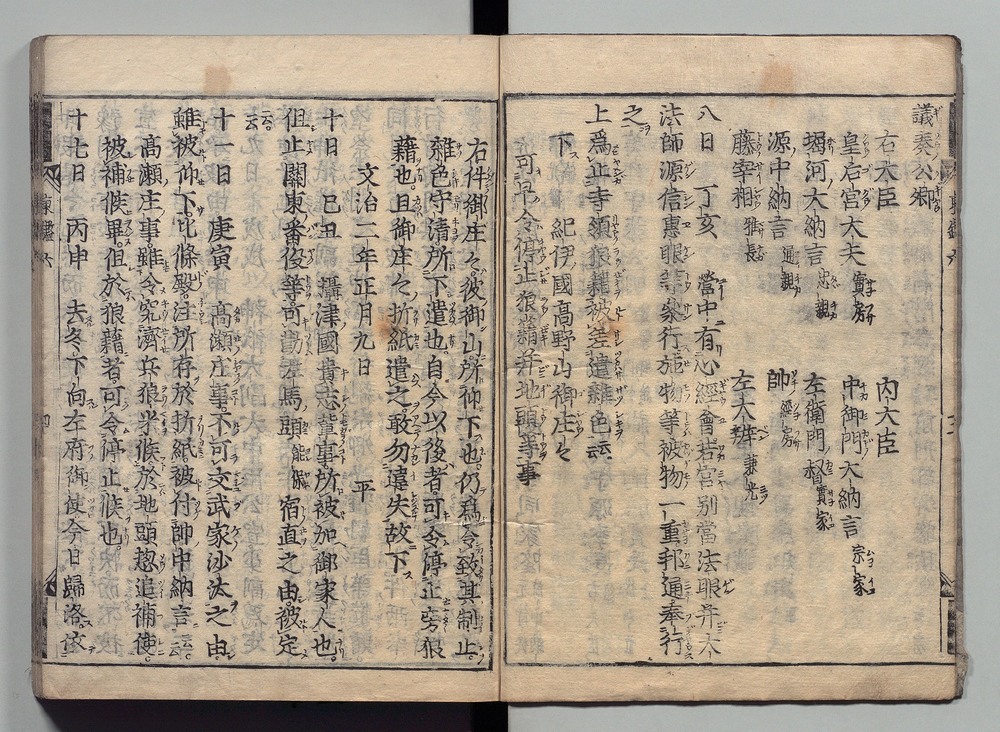 議奏公卿
右大臣　内大臣
皇后宮大夫 實房　中御門大納言 宗家
堀河大納言 忠親　左衛門督 實家
源中納言 通親　帥 經房
藤宰相 雅長　左大辨 兼光
八日　丁亥　營中有心經會若宮別當法眼并大
法師源信惠眼等參行施物等被物一重邦通奉行
之
上爲止寺領狼藉被差遣雜色云云
下　紀伊國高野山御庄々
可早令停止狼藉并地頭等事
右件御庄々彼御山所仰下也仍爲令致其制止
雜色守清所下遣也自今以後者可令停止旁狼
藉也且御庄々折紙遣之敢勿違失故下
文治二年正月九日　平
十日　己丑　攝津國貴志輩事所被加御家人也
但止關東番役等可勤左馬頭 能保 宿直之由被定
云云
十一日　庚寅　高瀬庄事不可交武家沙汰之由
雖被仰下此條殿注所存於折紙被付帥中納言云云
高瀬庄事雖令究濟兵狼米候於地頭惣追補使
被補候畢但於狼藉者可令停止候也
十七日　丙申　去冬下向左府御使今日歸洛依
東鑑六　四